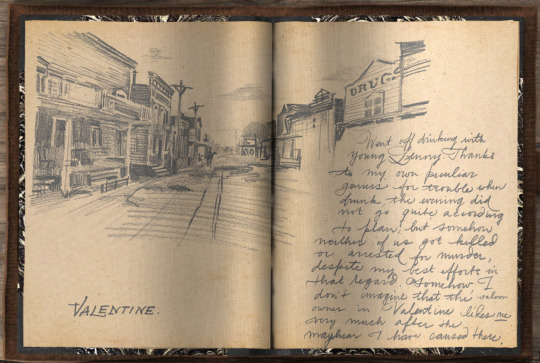 VALENTINE.
DRUGS
Went off drinking with
young Lenny. Thanks
to my own peculiar
genius for trouble when
drunk the evening did
not go quite according
to plan, but somehow
neither of us got killed
or arrested for murder,
despite my best efforts in
that regard. Somehow I
don't imagine that the saloon
owner in Valentine likes me
very much after the
I have caused there.